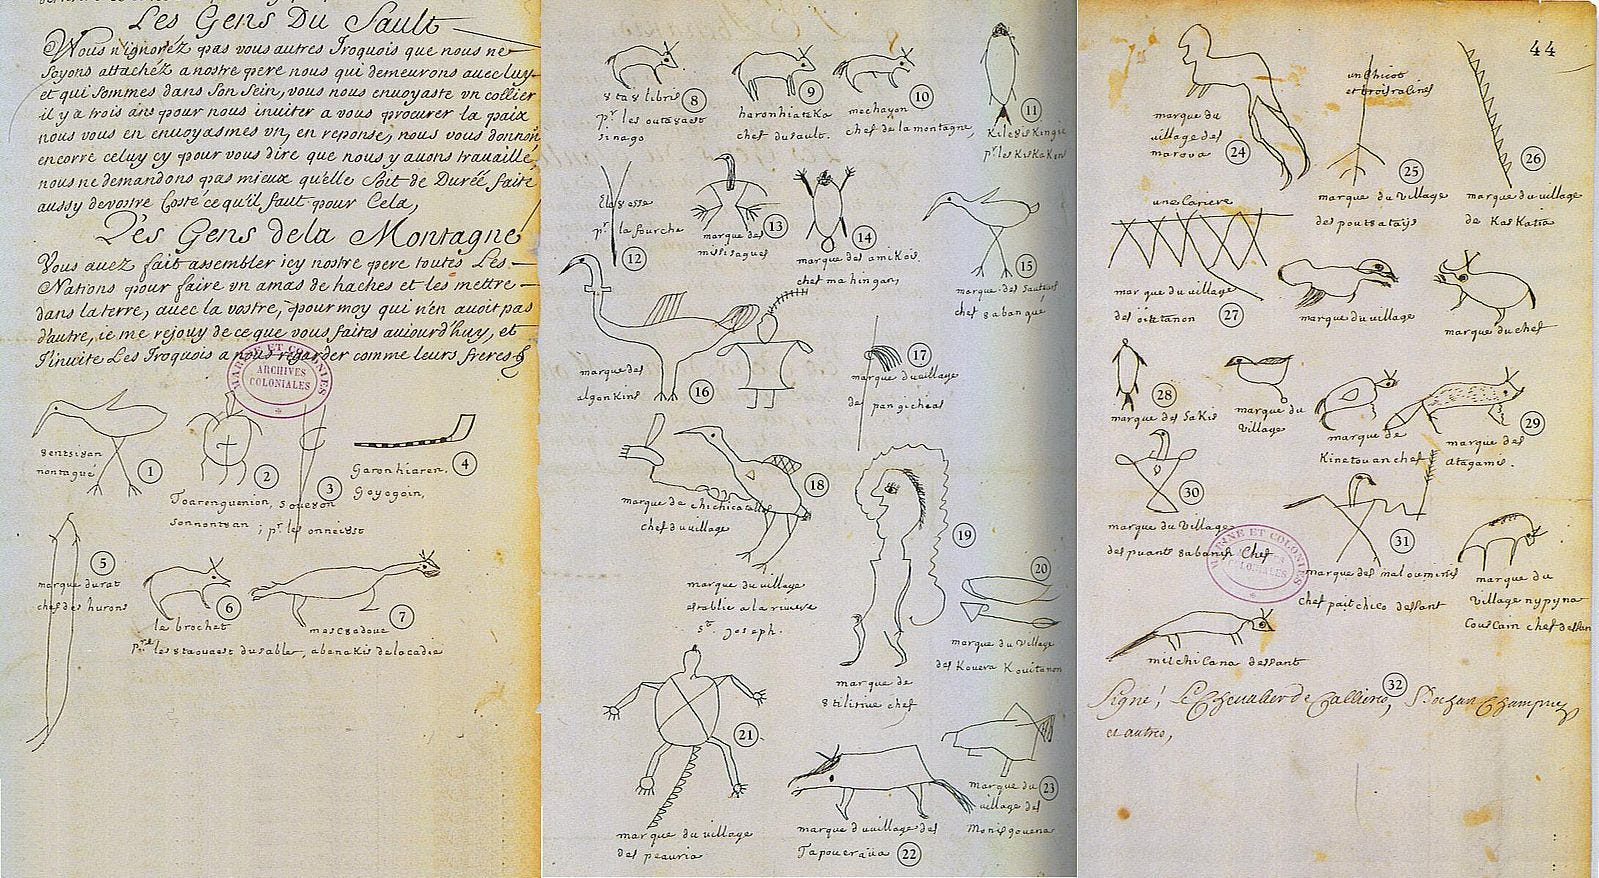 Les Gens Du Sault
Vous n'ignorez pas vous autres Iroquois que nous ne
soyons attachéz a nostre pere nous qui demeurons avec luy
et qui sommes dans son sein, vous nous envoyaste un collier
il y a trois ans pour nous inviter a vous procurer la paix
nous vous en envoyasmes un, en reponse, nous vous donnons
encorre celuy cy pour vous dire que nous y avons travaillé,
nous ne demandons pas mieux qu'elle soit de Durée faite
aussy de vostre Costé ce qu'il faut pour Cela,
Les Gens de la Montagne
Vous avez fait assembler icy nostre pere toutes Les
Nations pour faire un amas de haches et les mettre
dans la terre, avec la vostre, pour moy qui n'en avoit pas
d'autre, ie me rejouy de ce que vous faites aujourd'huy, et
J'invite Les Iroquois a nous regarder comme leurs freres
MARINE ET COLONIES
ARCHIVES
COLONIALES
8entsi8an
montagué
1
Toarenguenion,
sonnont8an
2
;
3
pr les onnei8st
Garonhiaren.
Goyogoin,
4
5
marque du rat
chef des hurons
6
le brochet
pre les 8ta8aest du sable,
7
mesk8adoue
abenakis de lacadie
8
pr les outa8aest
sinago
9
haronhiateka
chef du sault.
10
mechayon
chef de la montagne,
11
Kile8iskingié
pr les KisKaKons
Elas8esse
pr la fourche
12
marque des
missisagues
13
14
marque des amiKois
chef mahingan,
15
marque des sauteurs
chef 8abangué
marque des
algonkins
16
17
marque du village
de pangicheas
18
marque de chichicatalo
chef du village
marque du village
establie a la riviere
St. Joseph.
19
marque de
8tilirine chef
20
marque du Village
des Kouera Kouitanon
21
marque du village
des peauria
marque du village des
Tapoueraüa 22
marque du 23
village des
Monisgouena
marque du
village des
maroua 24
un Chicot
et trois racines
25
marque du Village
des pouteatays
26
marque du village
de KasKatia
une Cariere
marque du village
des oüetanon 27
marque du village
marque du chef
28
marque des SaKis
marque du
Village
marque de
Kinetouan chef
29
marque des
8tagamis.
30
marque du Village
des puants 8abanis Chef
31
marque des malouminis
Chef paitchico dessant
marque du
Village nypyna
Couscain chef dessan
MARINE ET COLONIES
COLONIALES
milchilana dessant
32
Signé, Le Chevalier de Calliere, Bochart Champigny
et autres,
44